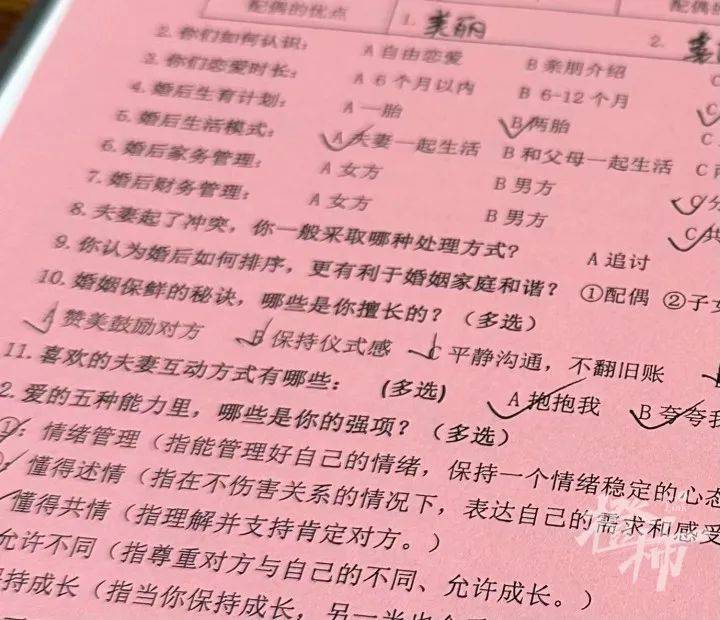 配偶的优点 1. 美丽 2.
2. 你们如何认识： A 自由恋爱 B 亲朋介绍 C
3. 你们恋爱时长： A 6 个月以内 B 6-12 个月
4. 婚后生育计划： A 一胎 B 两胎 C
5. 婚后生活模式： A 夫妻一起生活 B 和父母一起生活 C
6. 婚后家务管理： A 女方 B 男方
7. 婚后财务管理： A 女方 B 男方 C 共
8. 夫妻起了冲突，你一般采取哪种处理方式？ A 追讨
9. 你认为婚后如何排序，更有利于婚姻家庭和谐？ ①配偶 ②子
10. 婚姻保鲜的秘诀，哪些是你擅长的？（多选）
A 赞美鼓励对方 B 保持仪式感 C 平静沟通，不翻旧账
11. 喜欢的夫妻互动方式有哪些： (多选) A 抱抱我 B 夸夸我
2. 爱的五种能力里，哪些是你的强项？（多选）
①：情绪管理（指能管理好自己的情绪，保持一个情绪稳定的心态
懂得述情（指在不伤害关系的情况下，表达自己的需求和感受
懂得共情（指理解并支持肯定对方。）
允许不同（指尊重对方与自己的不同、允许成长。）
持成长（指当你保持成长，另一半也会
橙柿
Link